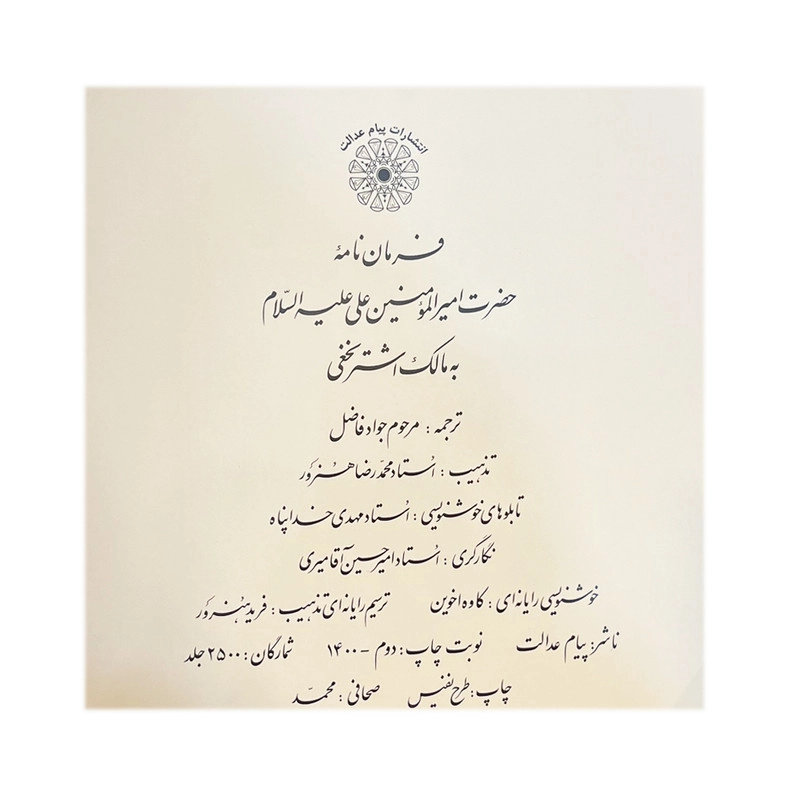 انتشارات پیام عدالت
فرمان نامهٔ
حضرت امیرالمؤمنین علی علیه السّلام
به مالک اشتر نخعی
ترجمه : مرحوم جواد فاضل
تذهیب : اُستاد محمّدرضا هنرور
تابلوهای خوشنویسی : اُستاد مهدی خداپناه
نگارگری : اُستاد امیرحسین آقامیری
خوشنویسی رایانه ای : کاوه اخوین ترسیم رایانه ای تذهیب : فرید هنرور
ناشر: پیام عدالت نوبت چاپ : دوم - ۱۴۰۰ شمارگان : ۲۵۰۰ جلد
چاپ : طرح نفیس صحافی : محمّد